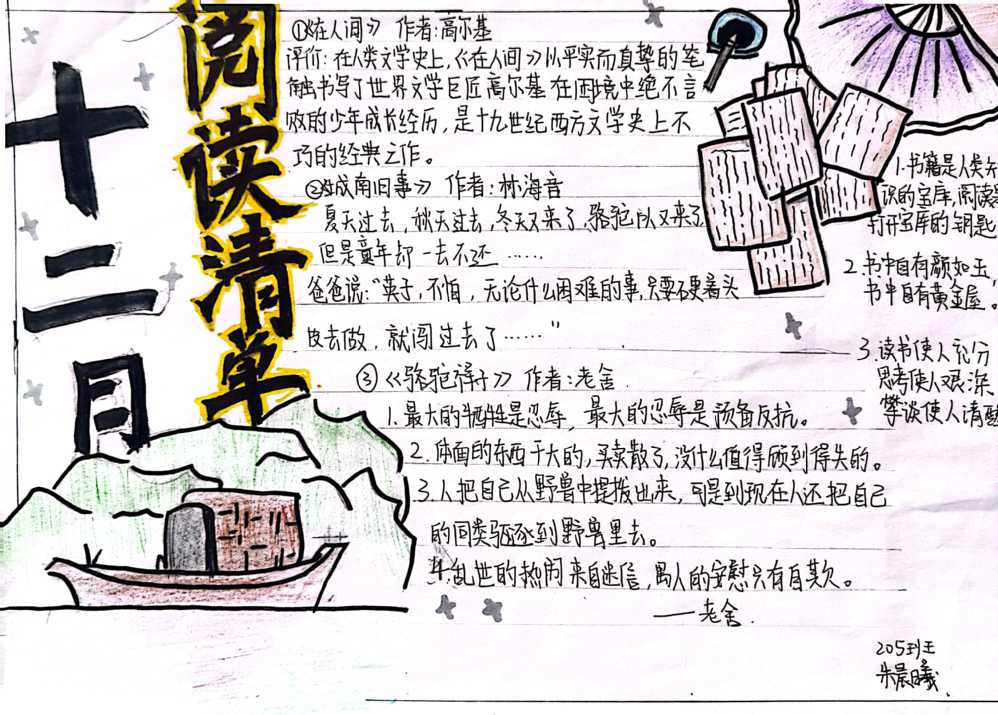 十二月
阅读清单
①《在人间》 作者:高尔基
评价:在人类文学史上,《在人间》从平实而真挚的笔
触书写了世界文学巨匠高尔基在困境中绝不言
败的少年成长经历,是十九世纪西方文学史上不
巧的经典之作。
②《城南旧事》 作者:林海音
夏天过去,秋天过去,冬天又来了,骆驼队又来了
但是童年却一去不还……
爸爸说:“英子,不怕,无论什么困难的事,只要硬着头
皮去做,就闯过去了……”
③《骆驼祥子》 作者:老舍
1.最大的牺牲是忍辱,最大的忍辱是预备反抗。
2.体面的东西干大的,买卖散了,没什么值得顾到得失的。
3.人把自己从野兽中提拔出来,可是到现在人还把自己
的同类驱逐到野兽里去。
4.乱世的热闹来自迷信,愚人的安慰只有自欺。
——老舍
1.书籍是人类
识的宝库,阅读
打开宝库的钥匙
2.书中自有颜如玉,
书中自有黄金屋。
3.读书使人充分
思考使人深
谈使人清醒
205班
朱晨曦